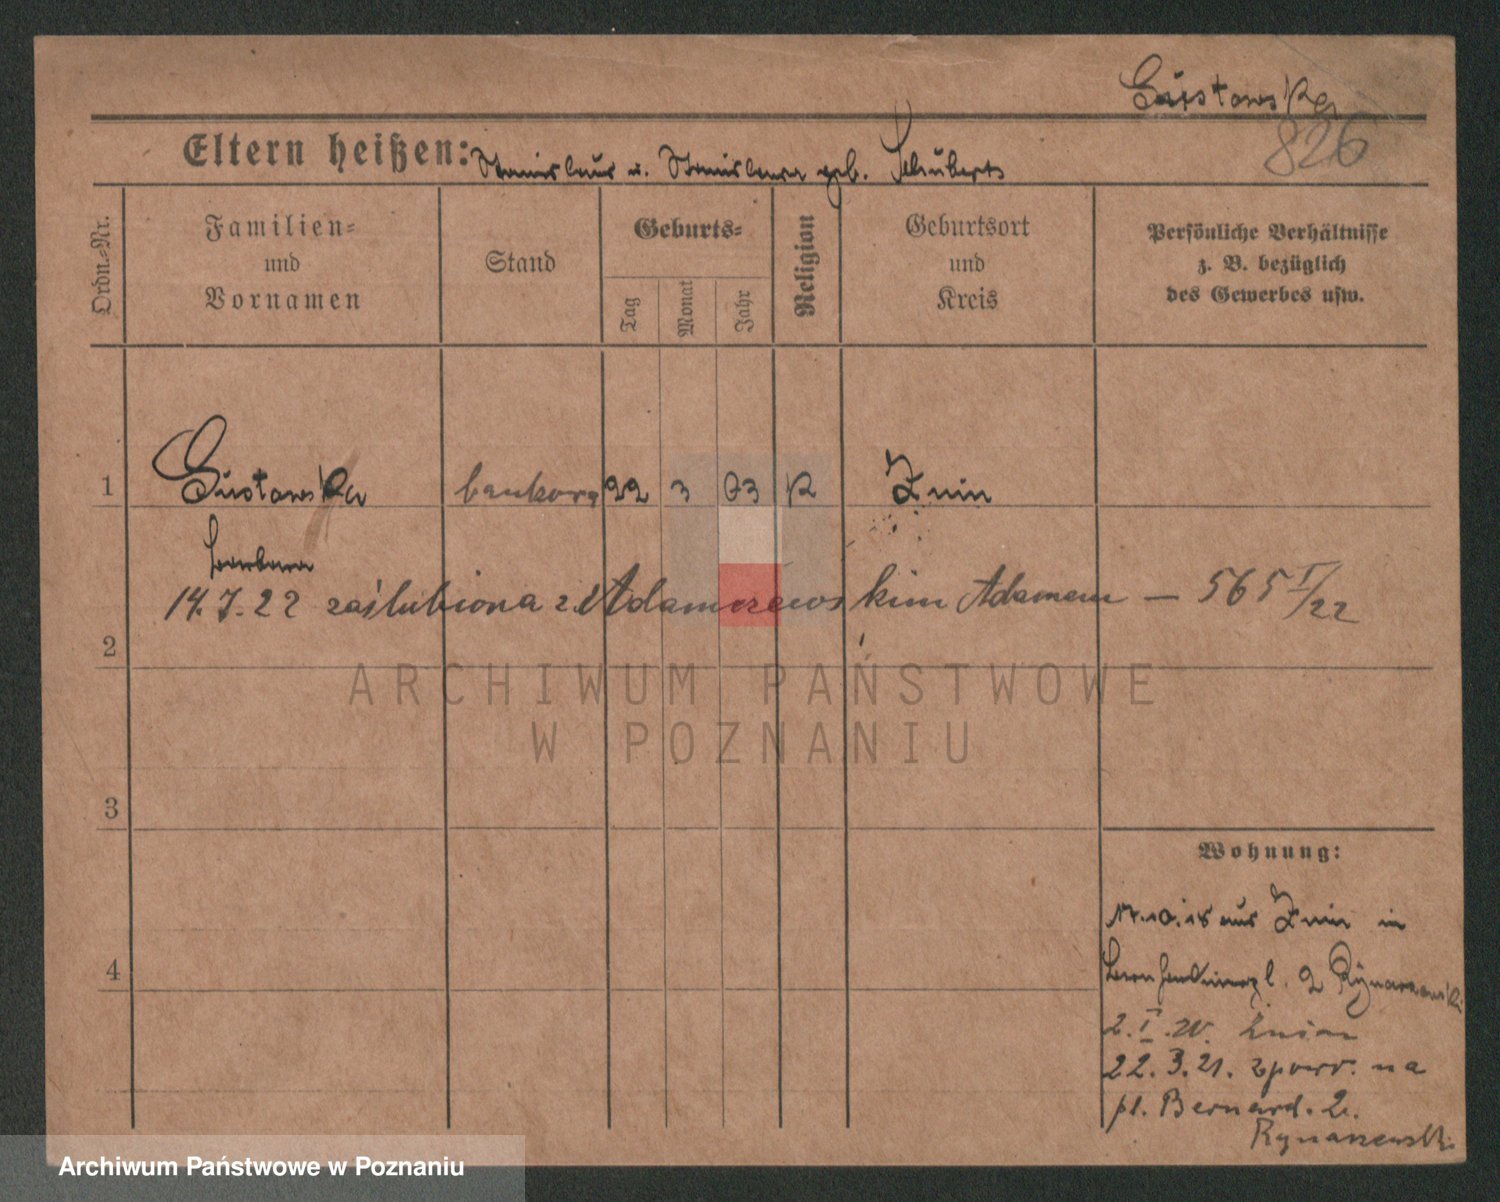 Gustowska
826
Eltern heißen: Stanislaus u. Stanislawa geb. Schubert
Ordn.=Nr.
Familien=
und
Vornamen
Stand
Geburts=
Tag
Monat
Jahr
Religion
Geburtsort
und
Kreis
Persönliche Verhältnisse
z. B. bezüglich
des Gewerbes usw.
1 Gustowska 22 3 03 K Znin
Barbara
14.7.22 zaślubiona z Adamczewskim Adamem — 565 I/22
2
ARCHIWUM PAŃSTWOWE
W POZNANIU
3
Wohnung:
17.10.18 aus Znin in
Bernhardinerpl. 2 Rynarzewski
4
2.I.20. Żnin
22.3.21. zpowr. na
pl. Bernard. 2.
Rynarzewski
Archiwum Państwowe w Poznaniu